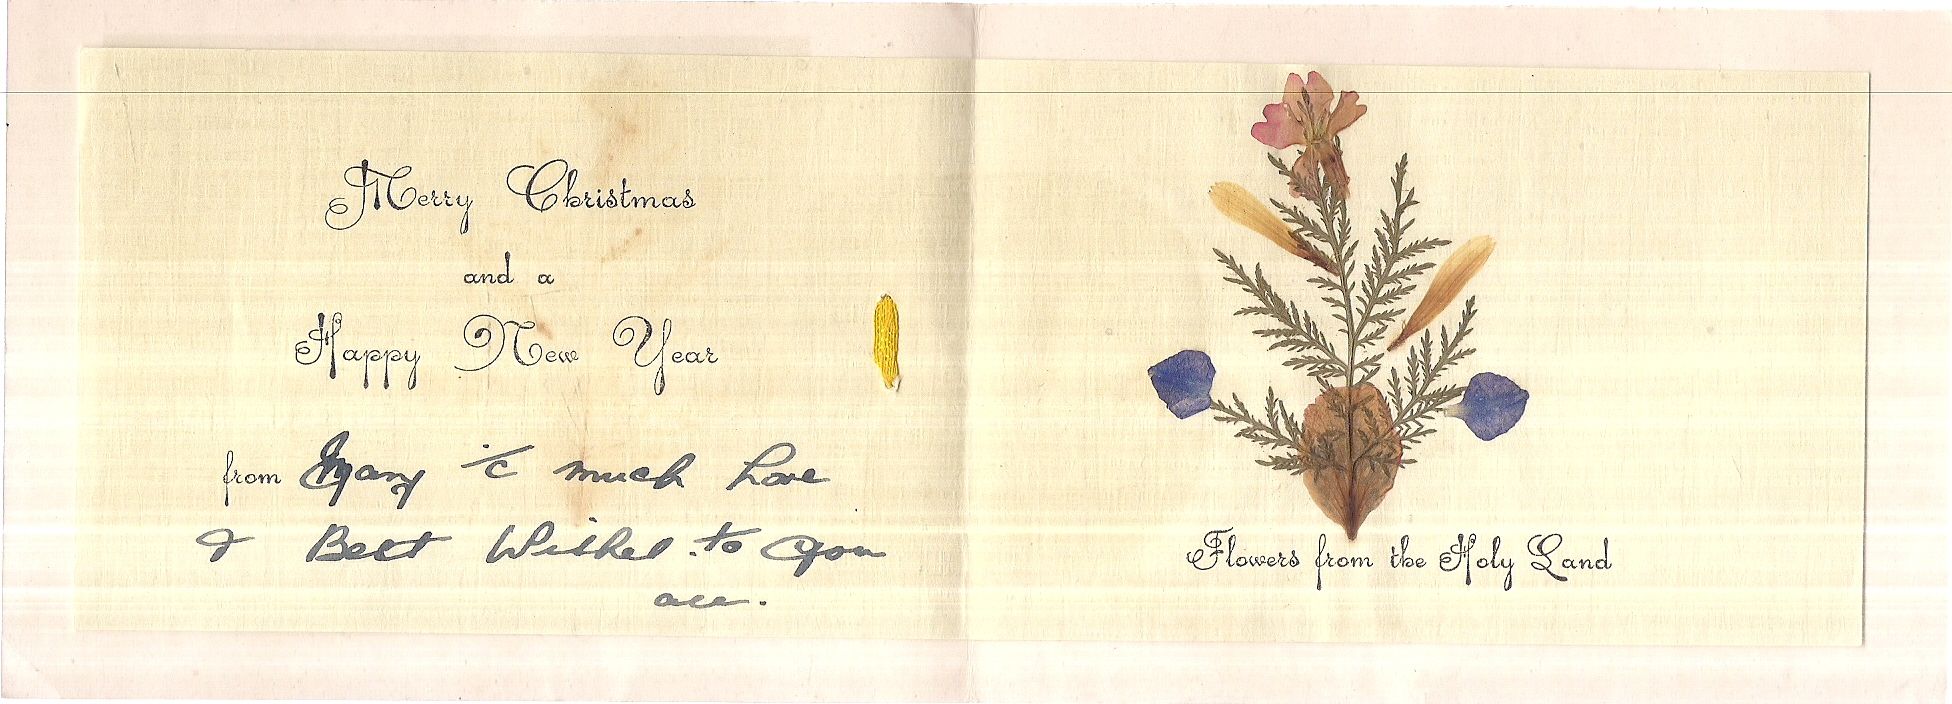 Merry Christmas
and a
Happy New Year
from Mary c̄ much Love
& Best Wishes to you
all.
Flowers from the Holy Land